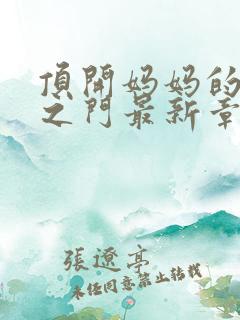 頂開妈妈的
之门最新章
張遼亭
未经同意禁止转载